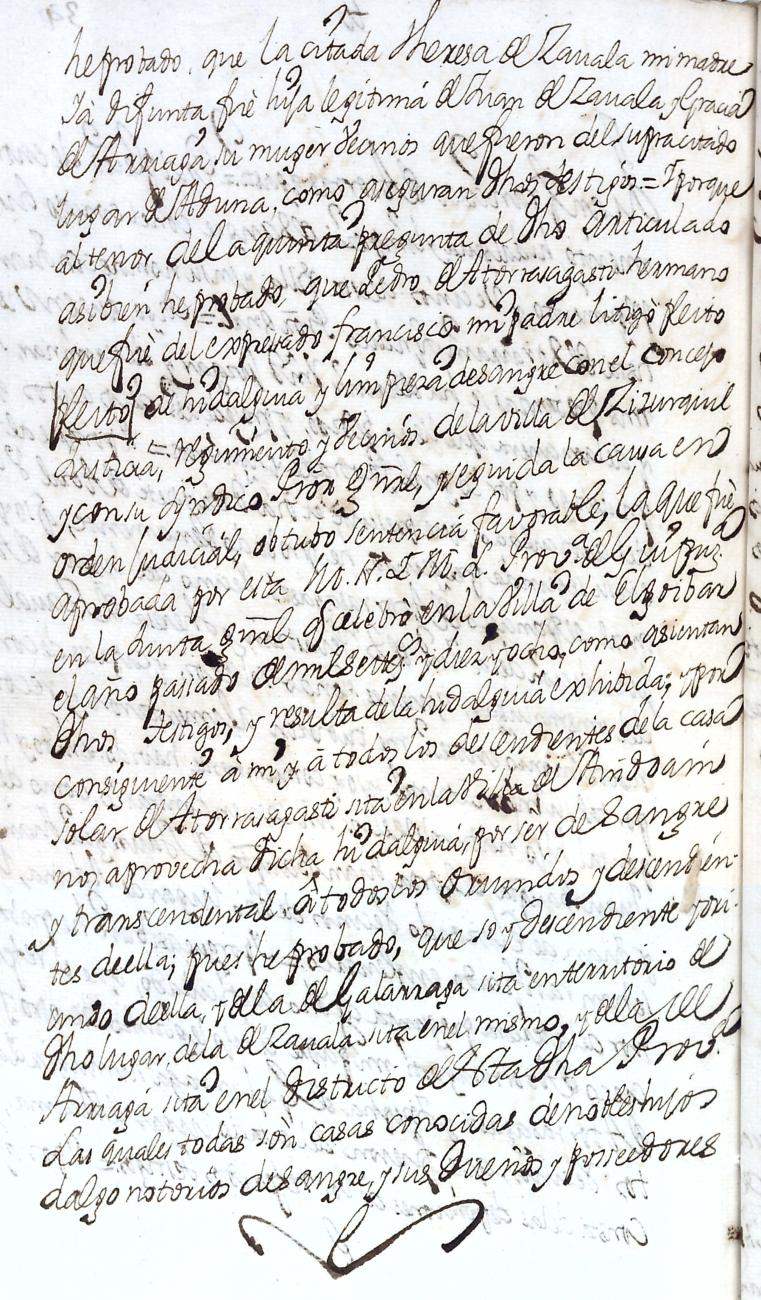 he probado, que la citada Theresa de Zavala mi madre
Ya difunta fuè hija legitima de Juan de Zavala y Gracia
de Arriaga su muger vecinos que fueron del supracitado
lugar de Aduna, como aseguran dhos testigos = Y porque
al tenor de la quinta pregunta de dho articulado
asibien he probado, que Pedro de Atorrasagasti hermano
que fuè del expresado francisco mi padre litigò Pleito
Pleito de hidalguia y limpieza de sangre con el Concejo
Justicia, = regimiento y vecinos de la villa de Zizurquil
y con su Syndico Pror Gñal, y seguida la causa en
orden Judicial, obtubo sentencia favorable, la que fuè
aprobada por esta M. N. Y M. L. Prov.ª de Guipuz.ª
en la Junta gñal q celebrò en la Villa de Elgoibar
el año passado de mil setts y diez y ocho, como asientan
dhos testigos, y resulta de la hidalguia exhibida; y por
consiguiente à mi, y à todos los descendientes de la casa
solar de Atorrasagasti sita en la Villa de Andoain
nos aprovecha dicha hidalguia, por ser de sangre
y transcendental à todos los oriundos y descendien-
tes de ella; pues he probado, que soy descendiente y ori-
undo de ella, y de la de Galarraga sita en territorio de
dho lugar, de la de Zavala sita en el mismo, y de la de
Arriaga sita en el districto de Esta dha Prov.ª
Las quales todas son casas conocidas de nobles hijos
dalgo notorios de sangre, y sus Dueños y posseedores